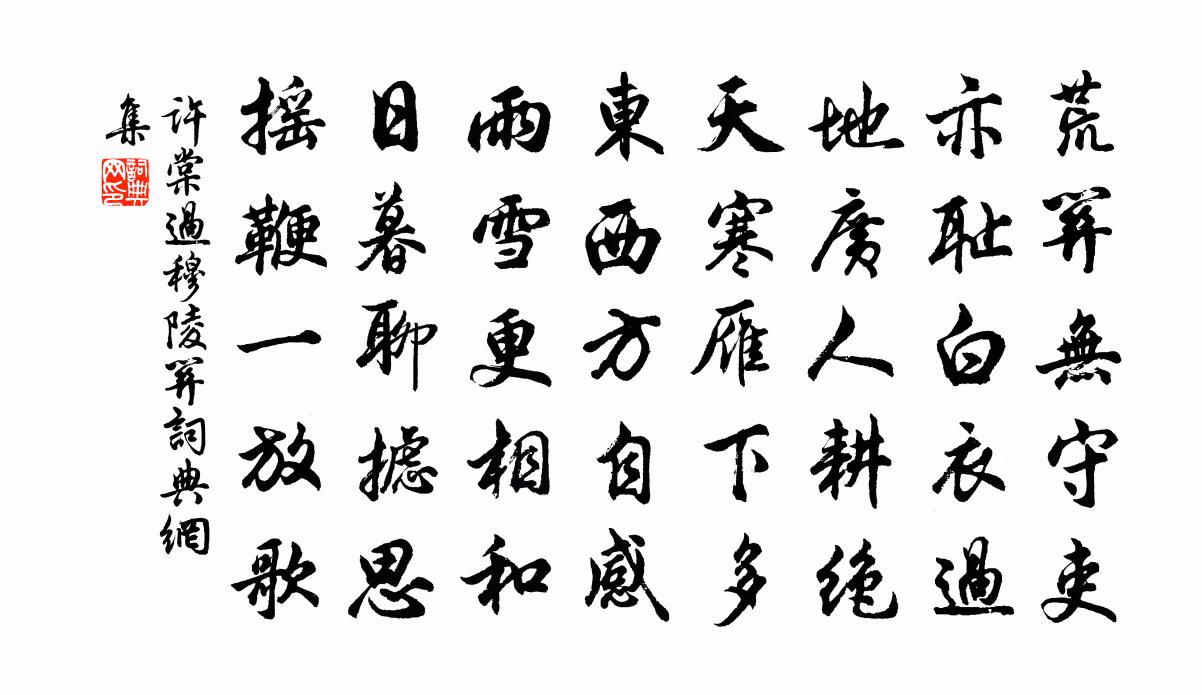 荒關無守吏
亦恥白衣過
地廣人耕絶
天寒雁下多
東西方自感
雨雪更相和
日暮聊攄思
搖鞭一放歌
許棠過穆陵關詞典網
集
詞典網印